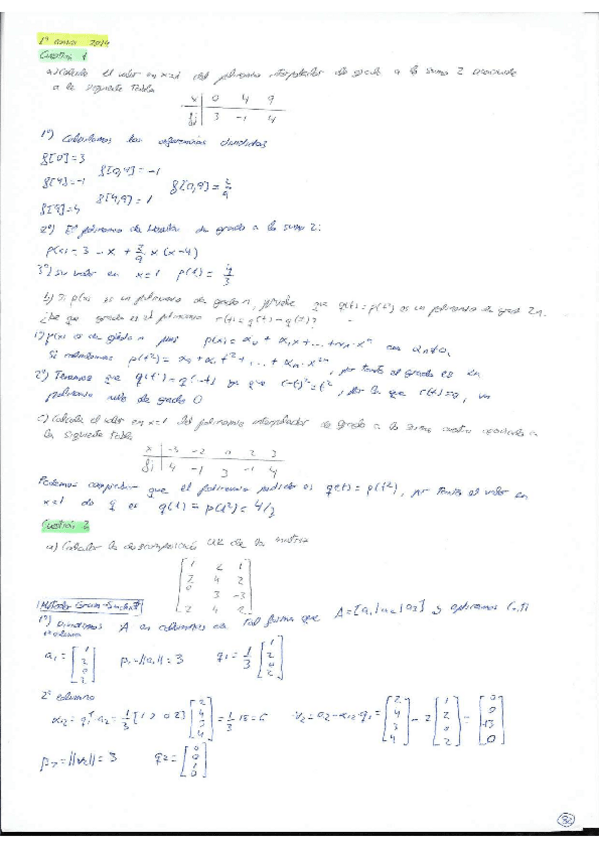 1ª semana 2014
Cuestión 1
a) Calcule el valor en x=1 del polinomio interpolador de grado a lo sumo 2 asociado
a la siguiente tabla
x | 0 4 9
fi | 3 -1 4
1º) Calculamos las diferencias divididas
f[0]=3
f[0,4]=-1
f[4]=-1
f[4,9]=1
f[9]=4
2º) El polinomio de grado a lo sumo 2:
p(x)= 3 - x + 2/9 x (x-4)
3º) su valor en x=1 p(1)= 4/3
b) Si p(x) es un polinomio de grado n, pruebe que q(t)=p(t²) es un polinomio de grado 2n.
¿De que grado es el polinomio r(t)=q(t)-q(-t)?
1º) p(x) es de grado n p(x)= α₀ + α₁x + ... + αₙ xⁿ con αₙ≠0,
Si p(t²) = α₀ + α₁t² + ... + αₙ x²ⁿ, por tanto el grado es 2n
2º) Tenemos que q(t)=q(-t) ya que (-t)²=t², por lo que r(t)=0, un
polinomio nulo de grado 0
c) Calcule el valor en x=1 del polinomio interpolador de grado a lo sumo cuatro asociado a
la siguiente tabla
x | -3 -2 0 2 3
fi | 4 -1 3 -1 4
Podemos comprobar que el polinomio pedido es q(t)=p(t²), por tanto el valor en
x=1 de q es q(1)=p(1²)=4/3
Cuestión 2
a) Calcular la descomposición QR de la matriz
[1 2 1
2 4 2
0 3 -3
2 4 2]
Método Gram-Schmidt
1º) A en columnas de tal forma que A=[a₁|a₂|a₃] y aplicamos
1ª columna
a₁ = [1 2 0 2] p₁=||a₁||=3 q₁=1/3 [1 2 0 2]
2ª columna
α₁₂ = q₁ᵀ a₂ = 1/3 [1 2 0 2] [2 4 3 4] = 1/3 18 = 6 v₂=a₂-α₁₂ q₁= [2 4 3 4] - 2 [1 2 0 2] = [0 0 3 0]
p₂=||v₂||=3 q₂= [0 0 1 0]